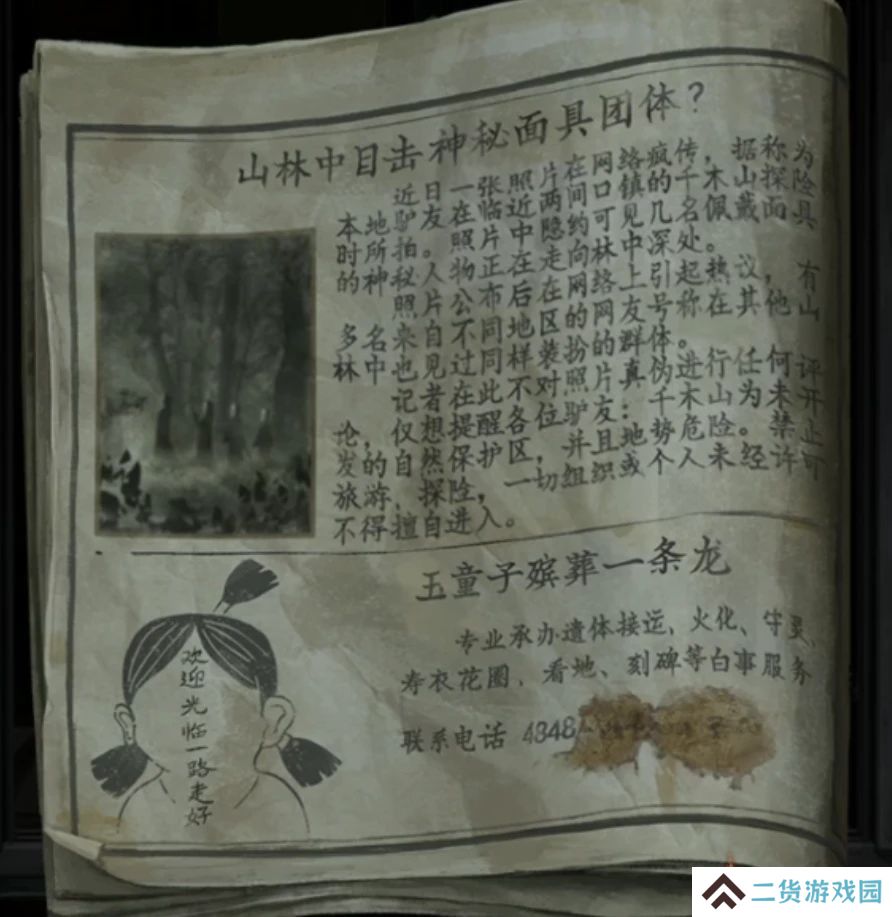 山林中目击神秘面具团体？
近日一张照片在网络疯传，据称为
本地驴友在临近两间口镇的千木山探险
时所拍。照片中隐约可见几名佩戴面具
的神秘人物正在走向林中深处。
照片公布后在网络上引起热议，有
多名来自不同地区的网友号称在其他山
林中也见过同样装扮的群体。
记者在此不对照片真伪进行任何评
论，仅想提醒各位驴友：千木山为未开
发的自然保护区，并且地势危险。禁止
旅游、探险，一切组织或个人未经许可
不得擅自进入。
欢迎光临一路走好
玉童子殡葬一条龙
专业承办遗体接运、火化、守灵、
寿衣花圈、看地、刻碑等白事服务
联系电话 4848
二货游戏园